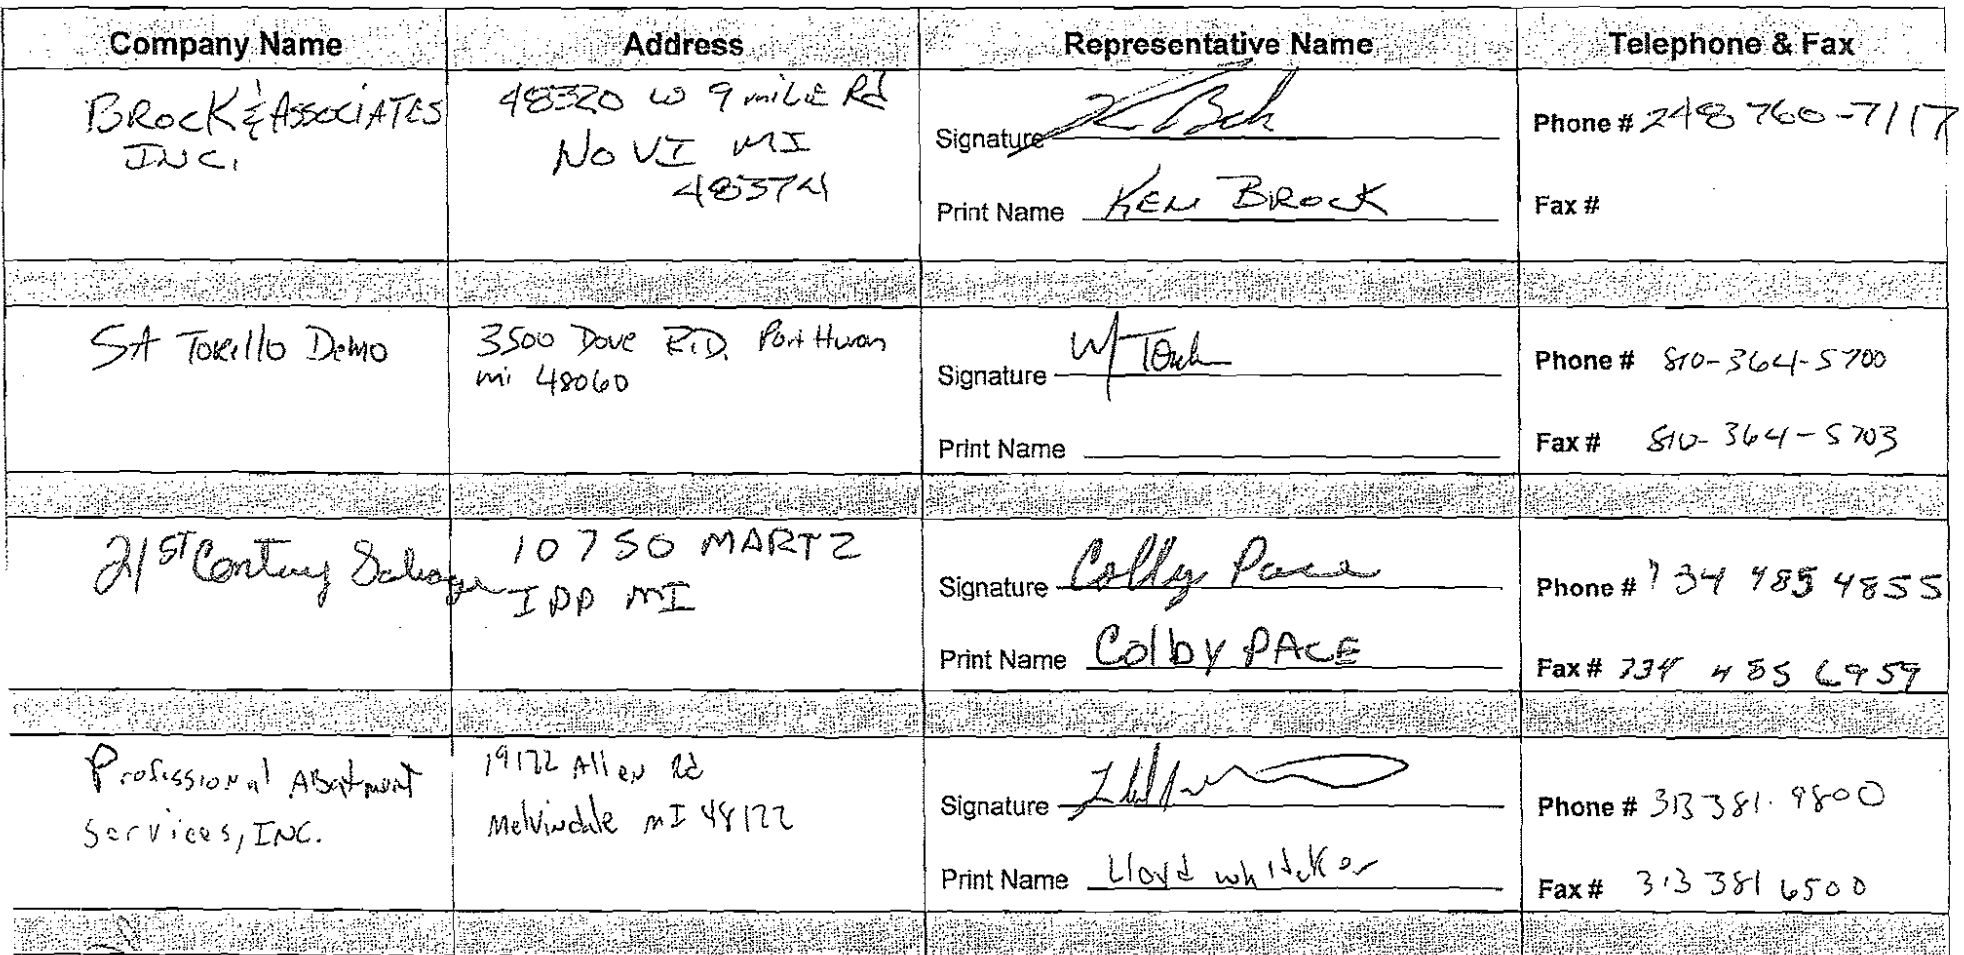 Company Name Address Representative Name Telephone & Fax
BROCK & ASSOCIATES INC.
48320 W 9 mile Rd
NOVI MI
48374
Signature
Print Name KEN BROCK
Phone # 248 760-7117
Fax #
SA Torello Demo
3500 Dove RD. Port Huron
mi 48060
Signature
Print Name
Phone # 810-364-5700
Fax # 810-364-5703
21st Century Salvage
10750 MARTZ
MI
Signature Colby Pace
Print Name Colby PACE
Phone # 734 485 4855
Fax # 734 485 6959
Professional Abatment
Services, INC.
19122 Allen Rd
Melvindale MI 48122
Signature
Print Name Lloyd whitaker
Phone # 313 381.9800
Fax # 313 381 6500